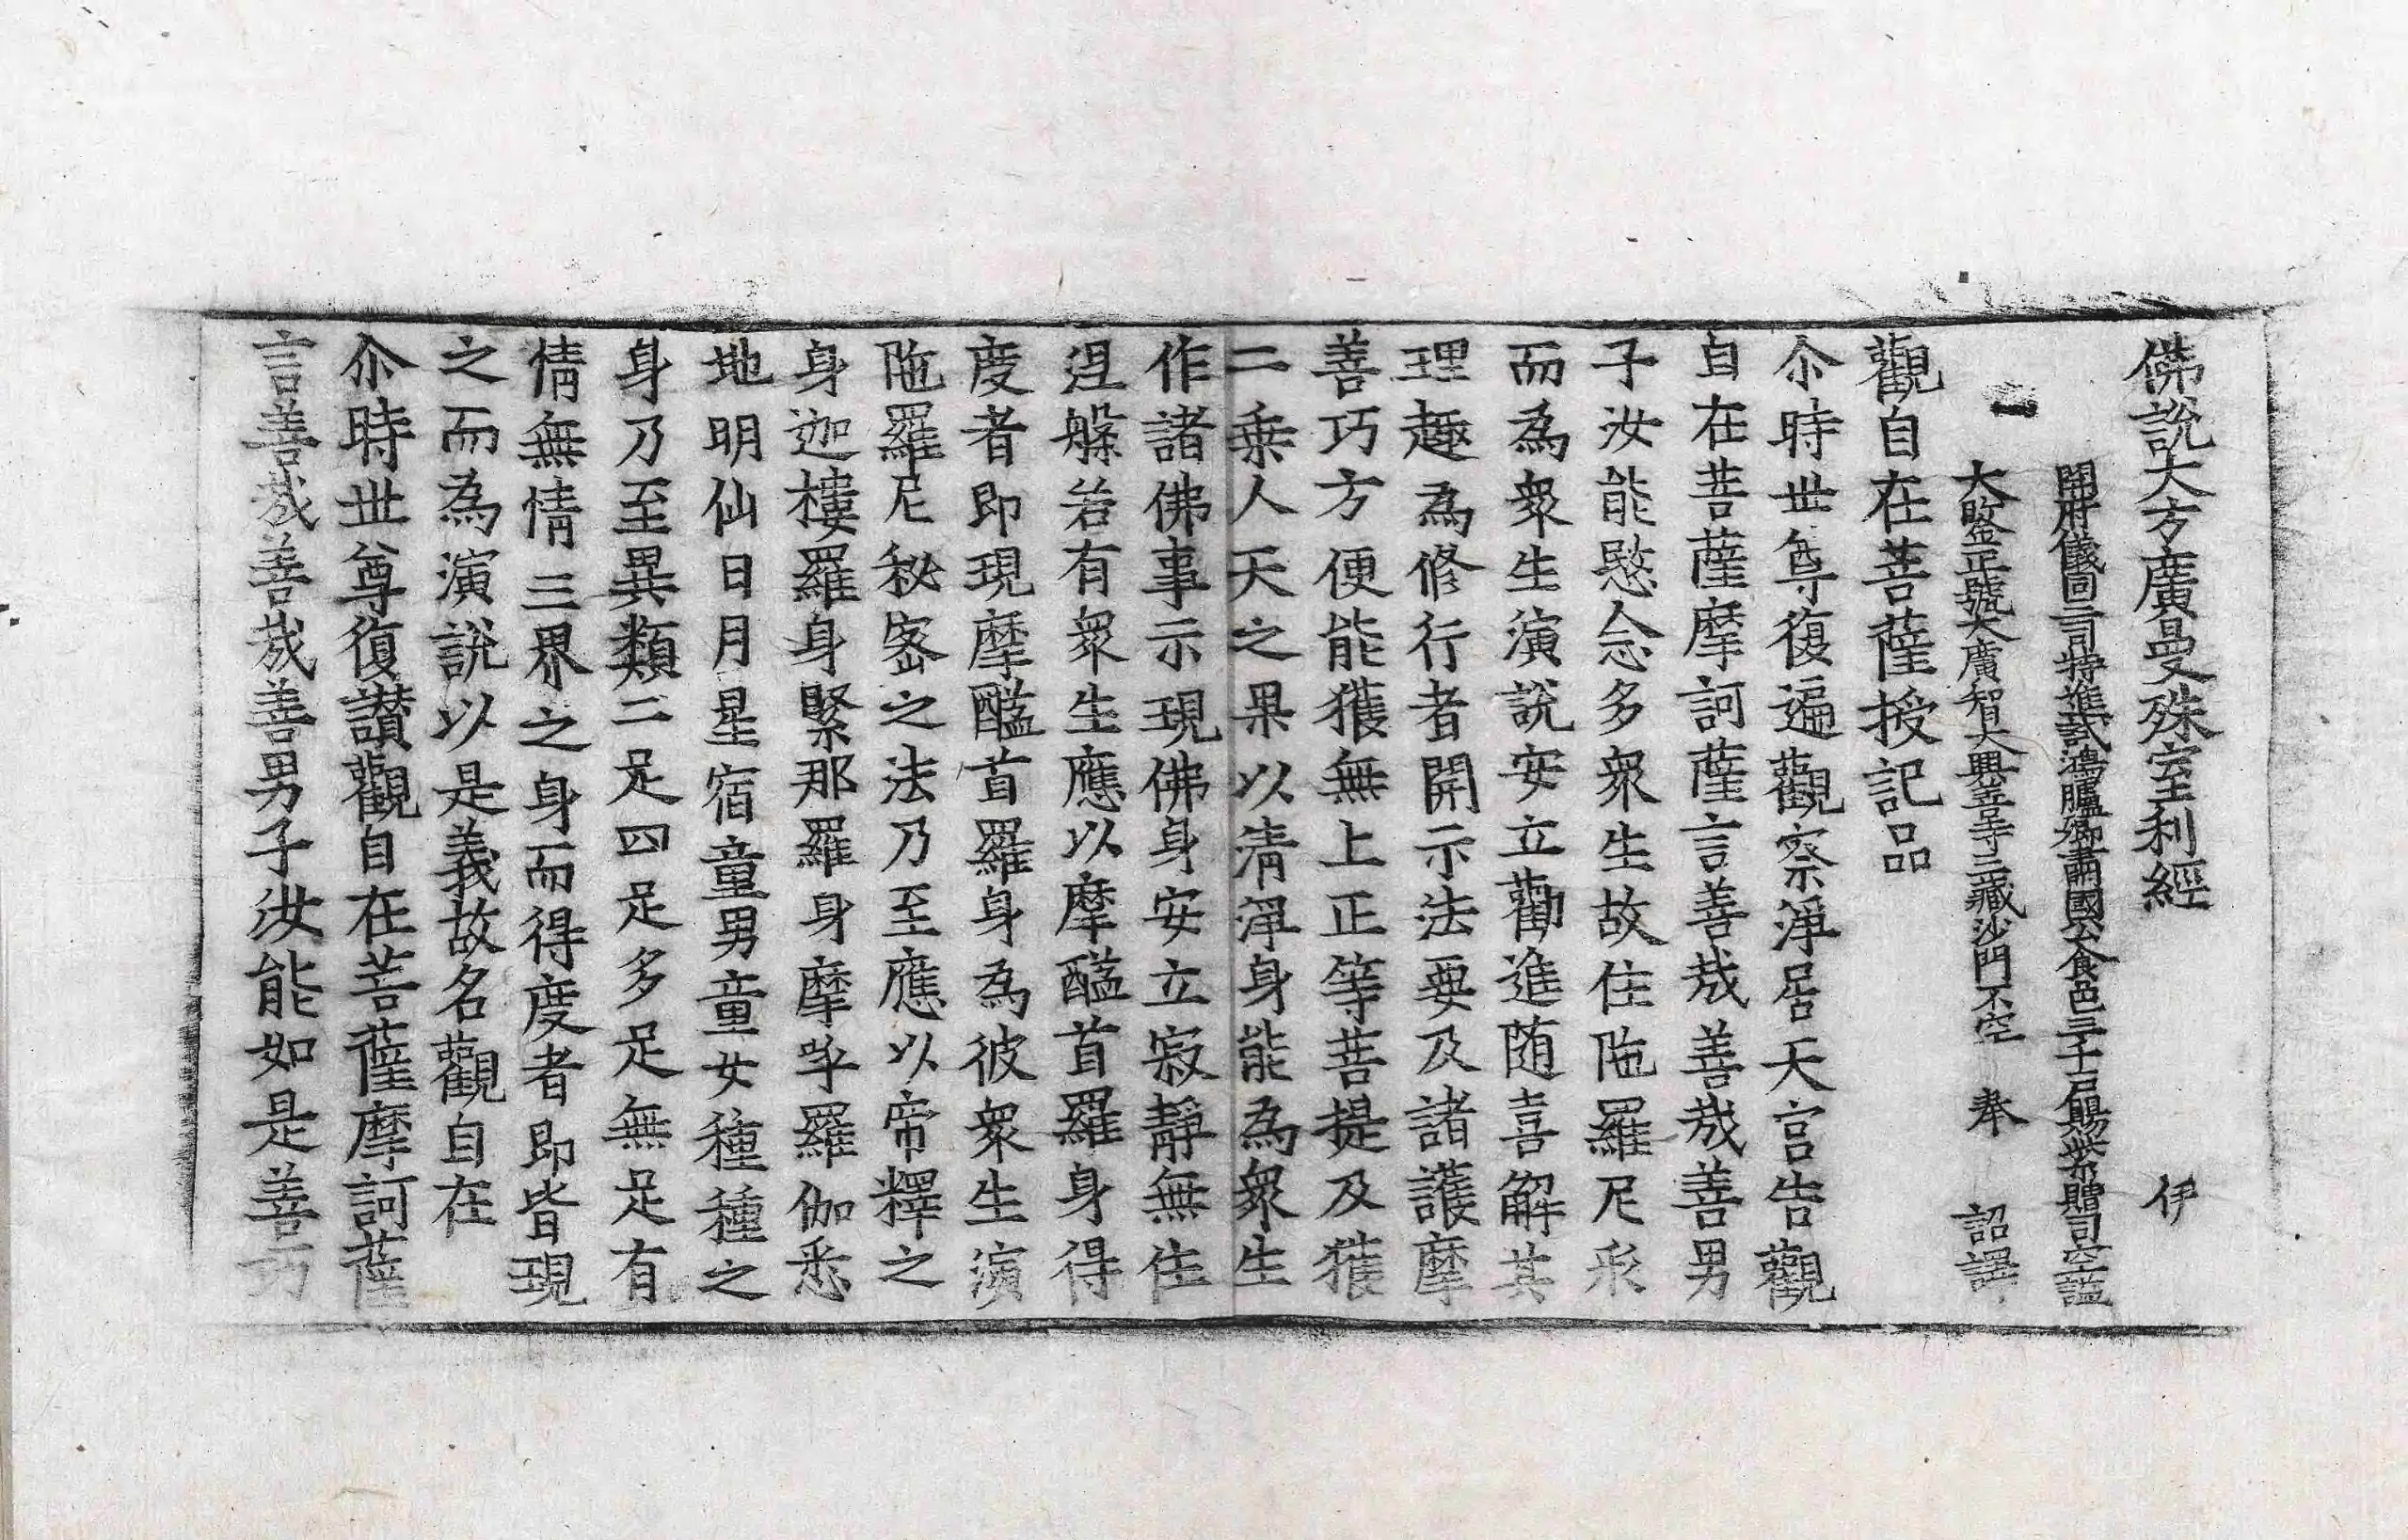 佛說大方廣曼殊室利經　伊
開府儀同三司特進試鴻臚卿肅國公食邑三千戶賜紫贈司空謚
大鑒正號大廣智大興善寺三藏沙門不空　奉　詔譯
觀自在菩薩授記品
尒時世尊復遍觀察淨居天宮告觀
自在菩薩摩訶薩言善哉善哉善男
子汝能愍念多衆生故住陁羅尼釆
而爲衆生演說安立勸進随喜解其
理趣爲修行者開示法要及諸護摩
善巧方便能獲無上正等菩提及獲
二乗人天之果以清淨身能爲衆生
作諸佛事示現佛身安立寂靜無住
涅槃若有衆生應以摩醯首羅身得
度者即現摩醯首羅身爲彼衆生演
陁羅尼秘密之法乃至應以帝釋之
身迦樓羅身緊那羅身摩呼羅伽悉
地明仙日月星宿童男童女種種之
身乃至異類二足四足多足無足有
情無情三界之身而得度者即皆現
之而爲演說以是義故名觀自在
尒時世尊復讃觀自在菩薩摩訶薩
言善哉善哉善男子汝能如是善巧